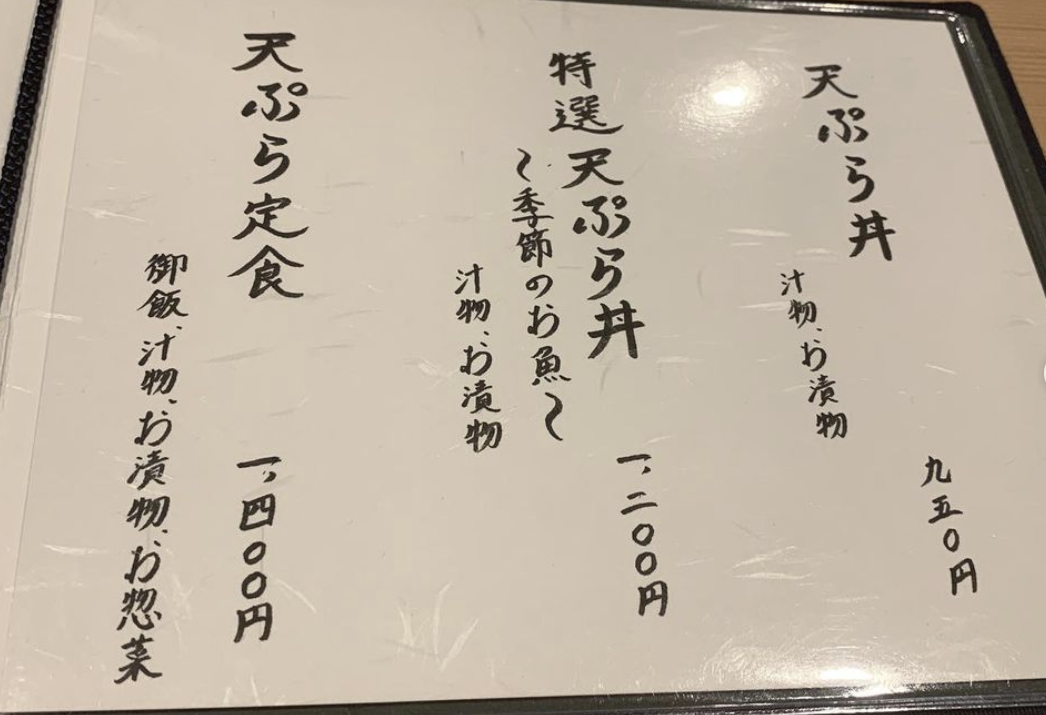 天ぷら丼
汁物、お漬物
九五〇円
特選天ぷら丼
〜季節のお魚〜
汁物、お漬物
一、二〇〇円
天ぷら定食
一、四〇〇円
御飯、汁物、お漬物、お惣菜